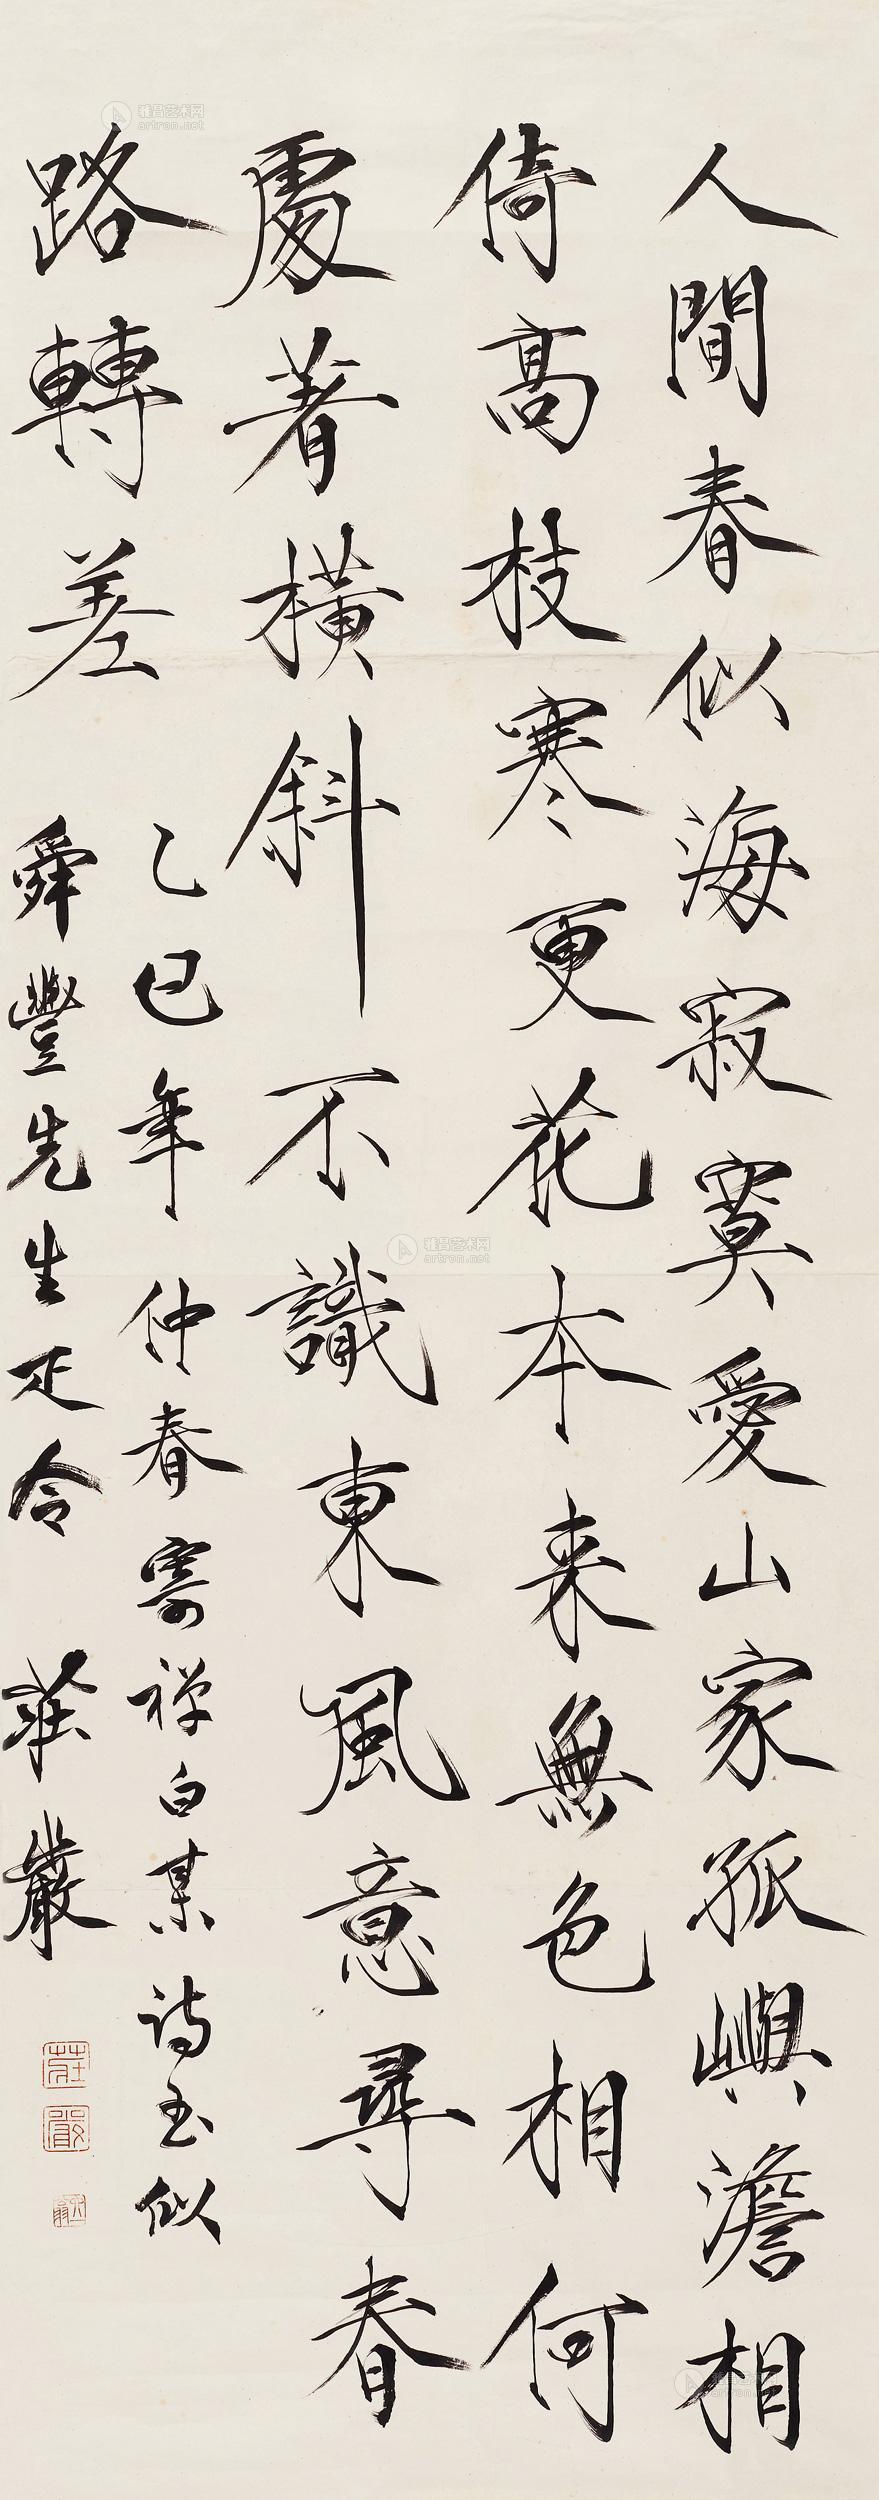 人間春似海寂寞愛山家孤嶼澹相
倚高枝寒更花本来無色相何
處著橫斜不識東風意尋春
路轉差
乙巳年仲春寄禅白某詩書似
舜豐先生疋令
莊嚴
莊嚴
雅昌艺术网
artron.net
雅昌艺术网
artron.net
雅昌艺术网
artron.net